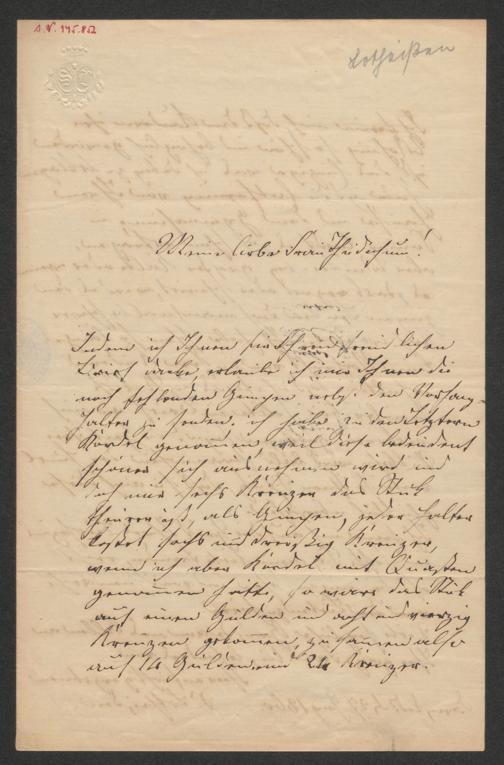 A.N. 145.852
Lotheißen
Meine liebe Frau Thudichum!
Indem ich Ihnen für Ihren freundlichen
Brief danke, erlaube ich mir Ihnen die
noch fehlenden Gimpen nebst den Vorhang-
halter zu senden. ich habe zu den letztern
Kordel genommen, weil diese bedeutend
schöner sich ausnehmen wird und
ich nur sechs Kreuzer das Stük
theurer ist, als Gimpen, jeder Halter
kostet sechs und dreißig Kreuzer,
wenn ich aber Kordel mit Quasten
genommen hätte, so wäre das Stük
auf einen Gulden und acht und vierzig
Kreuzer gekommen, zusammen also
auf 14 Gulden und 24 Kreuzer.